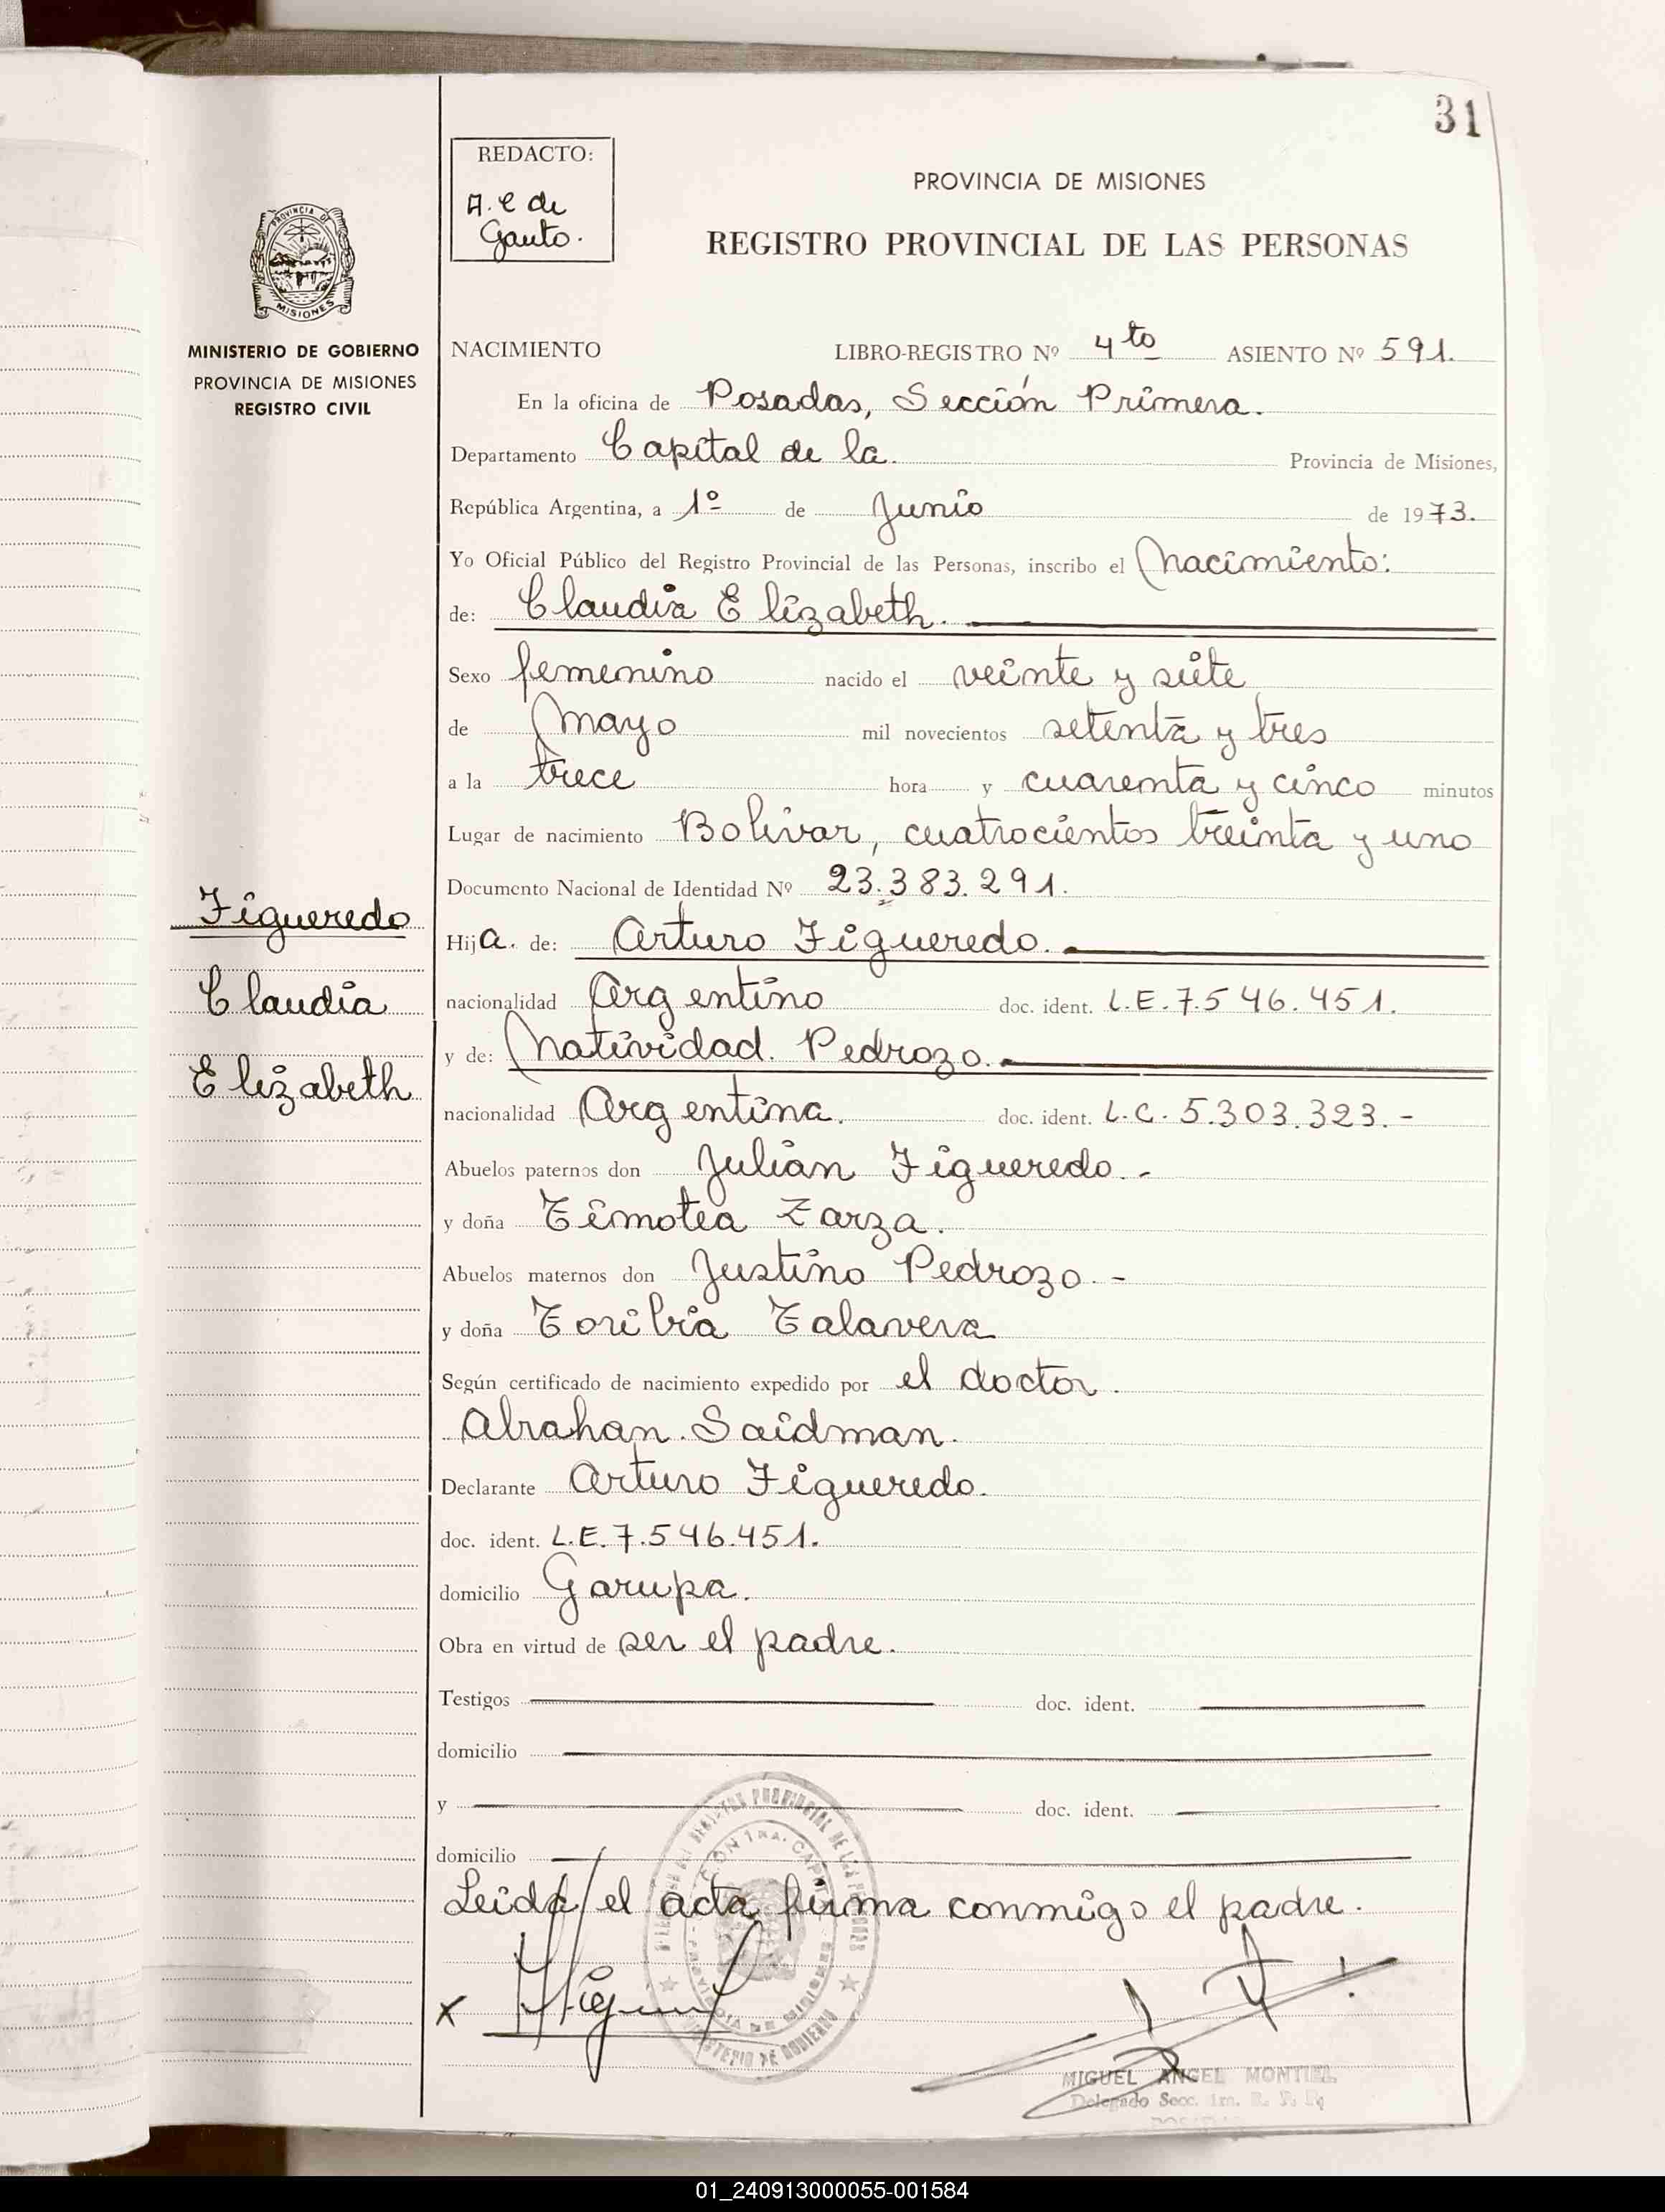 31
REDACTO:
A. e de
Gauto.
PROVINCIA DE MISIONES
REGISTRO PROVINCIAL DE LAS PERSONAS
PROVINCIA DE
MISIONES
MINISTERIO DE GOBIERNO
PROVINCIA DE MISIONES
REGISTRO CIVIL
NACIMIENTO LIBRO-REGISTRO Nº 4to ASIENTO Nº 591.
En la oficina de Posadas, Sección Primera.
Departamento Capital de la. Provincia de Misiones,
República Argentina, a 1º de Junio de 1973.
Yo Oficial Público del Registro Provincial de las Personas, inscribo el Nacimiento:
de: Claudia Elizabeth.
Sexo femenino nacido el veinte y siete
de Mayo mil novecientos setenta y tres
a la trece hora y cuarenta y cinco minutos
Lugar de nacimiento Bolivar, cuatrocientos treinta y uno
Documento Nacional de Identidad Nº 23.383.291.
Figueredo
Claudia
Elizabeth
Hija. de: Arturo Figueredo.
nacionalidad Argentino doc. ident. L.E. 7.546.451.
y de: Natividad. Pedrozo.
nacionalidad Argentina. doc. ident. L.C. 5.303.323.-
Abuelos paternos don Julián Figueredo.-
y doña Timotea Zarza.
Abuelos maternos don Justino Pedrozo.-
y doña Toribia Talavera
Según certificado de nacimiento expedido por el doctor.
Abrahan. Saidman.
Declarante Arturo Figueredo.
doc. ident. L.E. 7.546.451.
domicilio Garupa.
Obra en virtud de ser el padre.
Testigos doc. ident.
domicilio
y doc. ident.
domicilio
Leida el acta firma conmigo el padre.
x
MIGUEL ANGEL MONTIEL
Delegado Secc. 1ra. R. P. P.
01_240913000055-001584